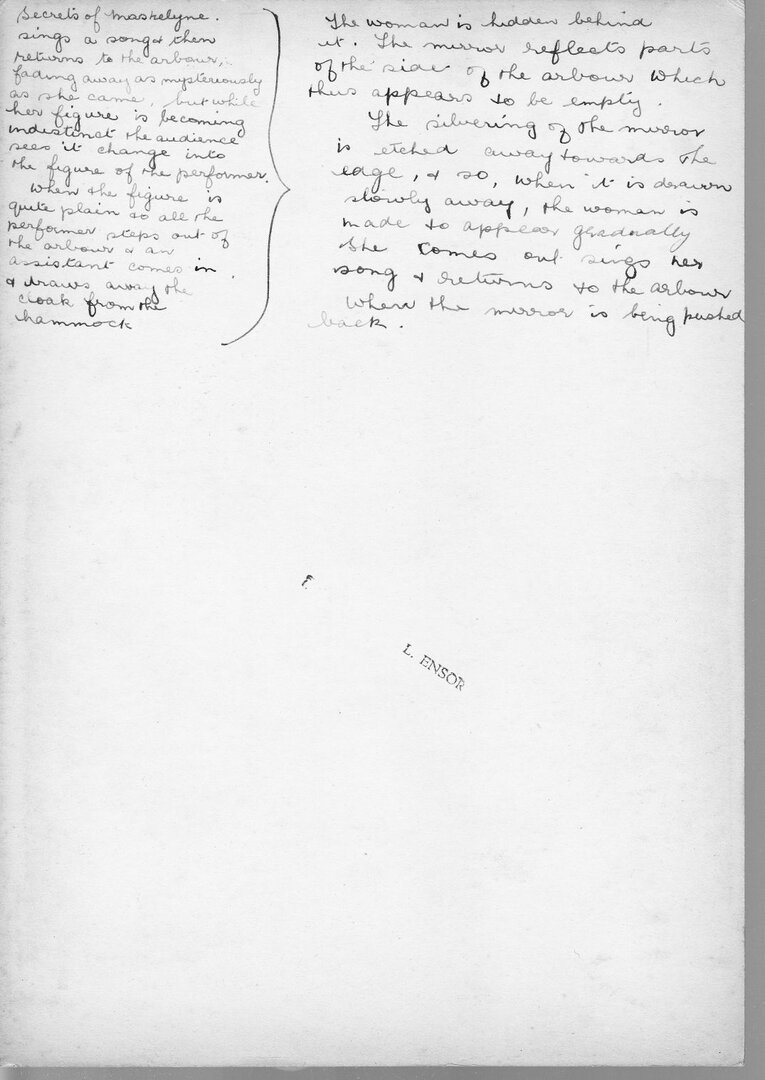 Secrets of Maskelyne.
sings a song & then
returns to the arbour,
fading away as mysteriously
as she came, but while
her figure is becoming
indistinct the audience
sees it change into
the figure of the performer.
When the figure is
quite plain to all the
performer steps out of
the arbour & an
assistant comes in
& draws away the
cloak from the
hammock
The woman is hidden behind
it. The mirror reflects parts
of the side of the arbour which
thus appears to be empty.
The silvering of the mirror
is etched away towards the
edge, & so, when it is drawn
slowly away, the woman is
made to appear gradually
She comes out sings her
song & returns to the arbour
when the mirror is being pushed
back.
L. ENSOR